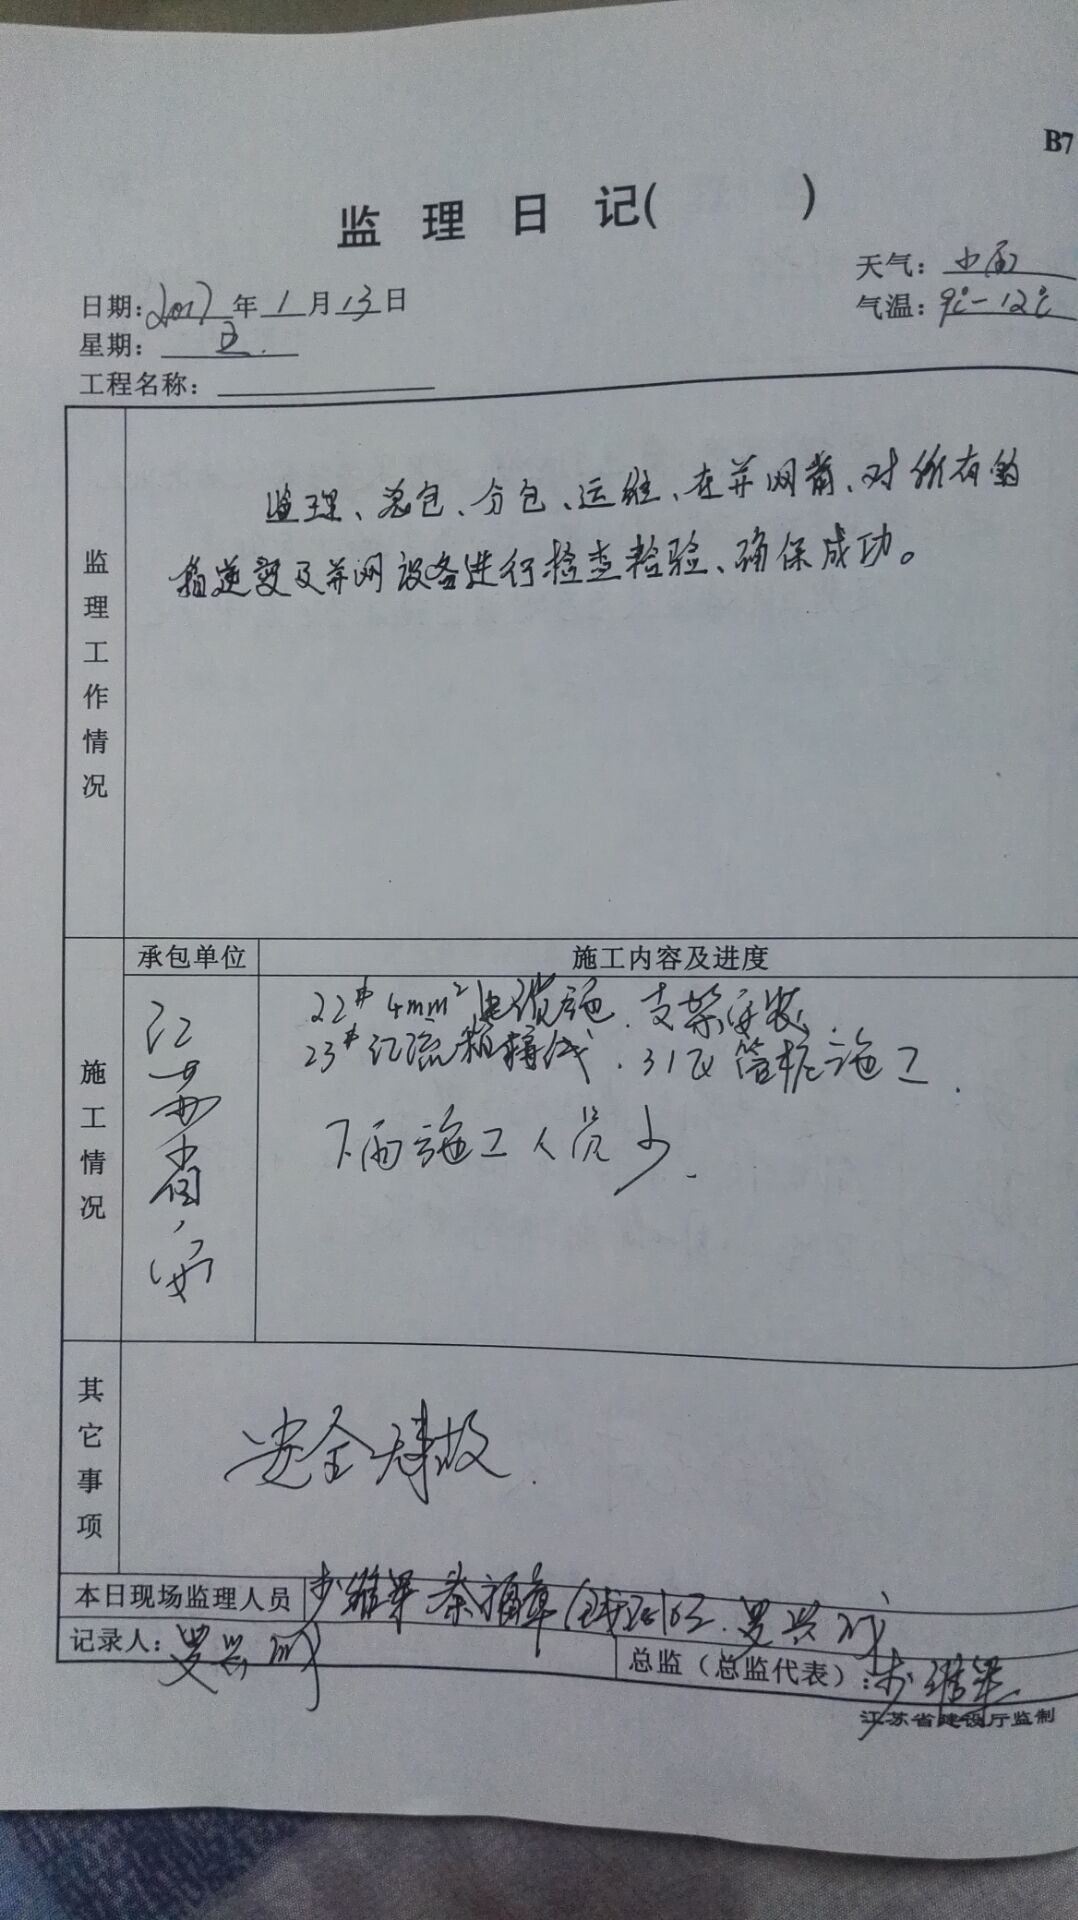 B7
监 理 日 记( )
天气：小雨
日期：2017年1月13日
气温：9℃-12℃
星期：五.
工程名称：
监理工作情况
监理、总包、分包、运维、在并网前、对所有的
箱逆变及并网设备进行检查检验、确保成功。
承包单位
施工内容及进度
施工情况
江苏省
安
22# 4mm² 电缆 施. 支架安装
23# 汇流箱接线. 31区管桩施工.
下雨施工人员少.
其它事项
安全无事故.
本日现场监理人员
秦福章
罗兴
记录人：罗兴
总监（总监代表）：
江苏省建设厅监制